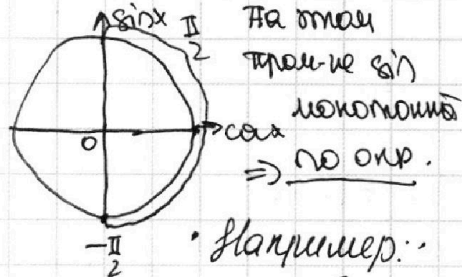 sinx
π/2
На этом
пром-ке sin
монотонна
0
cosx
=> по опр.
-π/2
• Например: